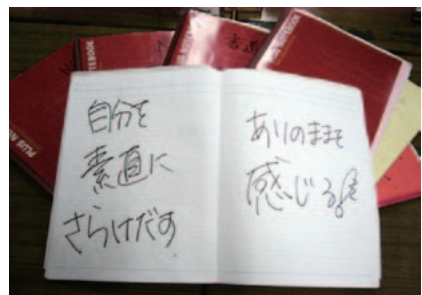 自分を
素直に
さらけだす
ありのままを
感じる!
PLUS NOTEBOOK
NOTEBOOK